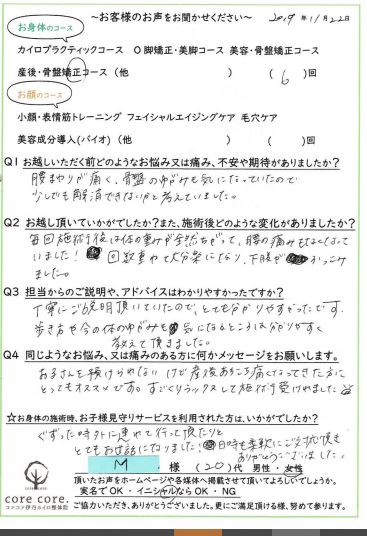 ～お客様のお声をお聞かせください～ 2019年11月22日
お身体のコース
カイロプラクティックコース O脚矯正・美脚コース 美容・骨盤矯正コース
産後・骨盤矯正コース (他 ) ( 6 )回
お顔のコース
小顔・表情筋トレーニング フェイシャルエイジングケア 毛穴ケア
美容成分導入(バイオ) (他 ) ( )回
Q1 お越しいただく前どのようなお悩み又は痛み、不安や期待がありましたか?
腰まわりが痛く、骨盤のゆがみも気になっていたので
少しでも解消できないかと考えていました。
Q2 お越し頂いていかがでしたか?また、施術後どのような変化がありましたか?
毎回施術後は体の重みが全然ちがって、腰の痛みもなくなって
いました! 回数重ねて大分楽になり、下腹が へっこみ
ました。
Q3 担当からのご説明や、アドバイスはわかりやすかったですか?
丁寧にご説明頂いていたので、とても分かりやすかったです。
歩き方や今の体のゆがみも 気になるところは分かりやすく
教えて頂きました。
Q4 同じようなお悩み、又は痛みのある方に何かメッセージをお願いします。
お子さんを預けられない けど産後あちこち痛くなってきた方に
とってもオススメです。すごくリラックスして施術を受けれました
☆お身体の施術時、お子様見守りサービスを利用された方は、いかがでしたか?
ぐずった時外に連れて行って頂いたり
とてもお世話になりました! 日時も柔軟にご対応頂き
ありがとうございました。
M 様 (20)代 男性・女性
頂いたお声をホームページや各媒体へ掲載させて頂いてよろしいでしょうか。
実名でOK・イニシャルならOK・NG
core core.
ココアコア伊丹カイロ整体院
ご協力いただき、ありがとうございました。更にご満足頂ける様、努めて参ります。